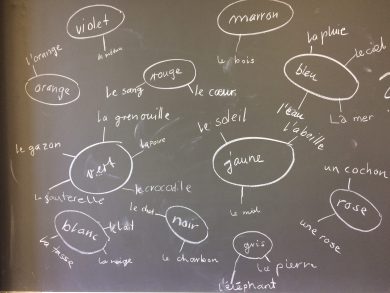 violet
marron
l'orange
orange
le bois
la pluie
le ciel
bleu
l'eau
La mer
rouge
le sang
le cœur
la grenouille
le gazon
vert
la poire
la sauterelle
le crocodile
le soleil
L'abeille
jaune
le miel
un cochon
rose
une rose
blanc
le lait
la tasse
la neige
le chat
noir
le charbon
gris
la pierre
l'éléphant